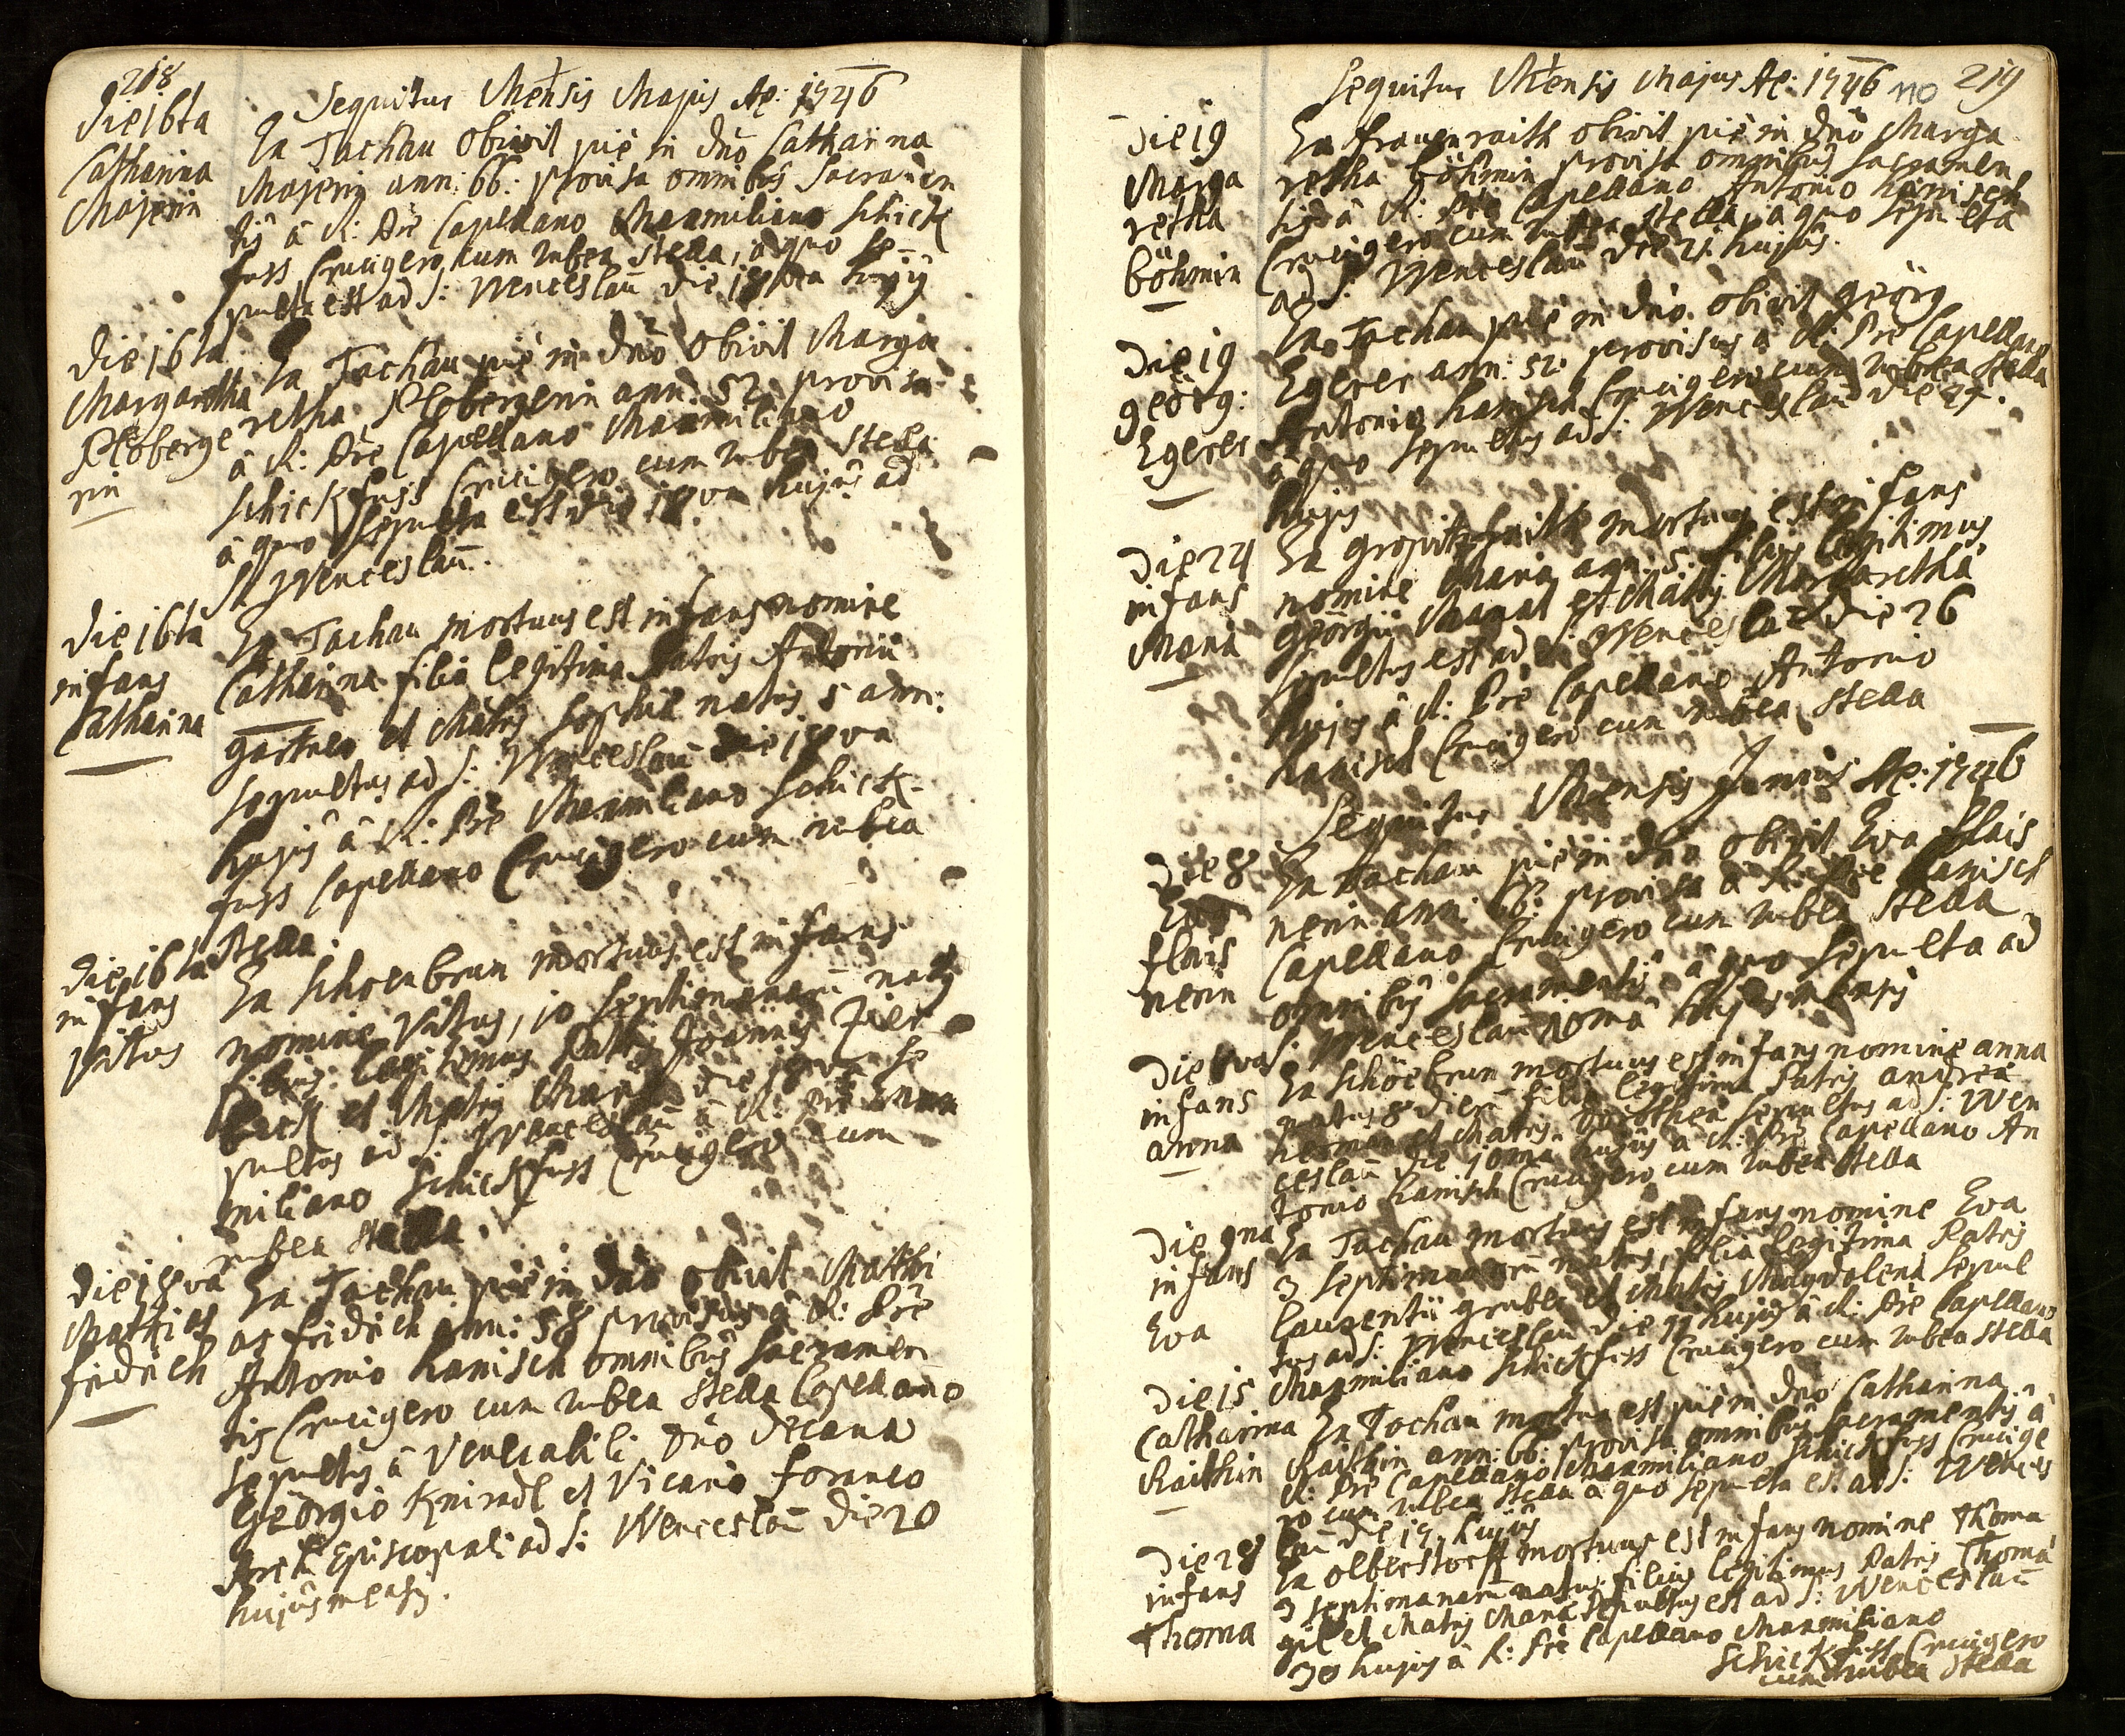 218
Sequitur Mensis Majus Ao: 1746
die 16ta
Catharina
Majerin
Ex Tachau obivit pie in dno Catharina
Majerin ann: 66: provisa omnibus Sacramen
tis â R: Pre Capellano Maxmiliano Schick
fuss Crucigero cum rubea Stella, a quo se-
pulta est ad S: Wenceslau die 18va hujus
die 16ta
Margaretha
Plöberge
rin
Ex Tachau pie in dno obivit Marga
retha Plobergerin ann: 52: provisa
â R: Pre Capellano Maxmiliano
Schickfuss Crucigero cum rubea Stella
â quo Sepulta est die 18va hujus ad
S: Wenceslau.
die 16ta
infans
Catharina
Ex Tachau mortuus est infans nomine
Catharina filia legitima Patris Antonii
gartner et Matris Sophiæ natus 5 ann:
sepultus ad S: Wenceslau die 18va
hujus â R: Pre Maxmiliano Schick-
fuss Capellano Crucigero cum rubea
Stella.
die 16ta
infans
Vitus
Ex Schoenbrun mortuus est infans
nomine Vitus, 10 septimanaru natus
filius legitimus Patris Joannis
et Matris Maria die 18va se
pultus ad S: Wenceslau â R: Pre Max
miliano Schickfuss Crucigero cum
rubea Stella.
die 18va
Mathies
fridrich
Ex Tachau pie in dno obivit Mathi
as fridrich ann: 58 provisus â R: Pre
Antonio hanisch omnibus Sacramen
tis Crucigero cum rubea Stella Capellano
sepultus â Venerabili Dno Decano
Georgio Knirndl et Vicario foraneo
Episcopali ad S: Wenceslau die 20
hujus mensis.
Sequitur Mensis Majus Ao: 1746 110 219
die 19
Marga
retha
böhmin
Ex frauenraith obivit pie in dno Marga
retha böhmin provisa omnibus Sacramen
tis â R: Pre Capellano Antonio hanisch
Crucigero cum rubea Stella, a quo sepulta
ad S: Wenceslau die 21 hujus.
die 19
geörg:
Egerer
Ex Tachau pie in dno obivit geörg
Egerer ann: 52: provisus â R: Pre Capellano
Antonio hanisch Crucigero cum rubea Stella
â quo sepultus ad S: Wenceslau die
hujus
die 24
infans
Maria
Ex mortuus est infans
nomine Maria ann: 5. filius legitimus
Georgii et Matris Margaretha
sepultus est ad S: Wenceslau die 26
hujus â R: Pre Capellano Antonio
hanisch Crucigero cum rubea Stella
Sequitur Mensis Junius Ao: 1746
die 8
Eva
flais
nerin
Ex Tachau pie in dno obivit Eva flais
nerin ann: 66: provisa â R: Pre hanisch
Capellano Crucigero cum rubea Stella
omnibus Sacramentis â quo sepulta ad
S: Wenceslau 10ma hujus mensis
die 8va
infans
anna
Ex Schöebrun mortuus est infans nomine anna
natus 8 dieru filia legitima Patris andrea
herman et Matris Dorothea sepultus ad S: Wen
ceslau die 10ma hujus â R: Pre Capellano An
tonio hanisch Crucigero cum rubea Stella
die 9na
infans
Eva
Ex Tachau mortuus est infans nomine Eva
3 septimanaru natus, filia legitima Patris
laurentii gruber et Matris Magdalena sepul
tus ad S: Wenceslau die 11 hujus â R: Pre Capellano
Maxmiliano Schickfuss Crucigero cum rubea Stella
die 15
Catharina
Raithin
Ex Tachau mortua est pie in dno Catharina
Raithin ann: 66: provisa omnibus Sacramentis â
R: Pre Capellano Maxmiliano Schickfuss Crucige
ro cum rubea Stella â quo sepulta est ad S: Wences
lau die 17 hujus
die 28
infans
Thoma
Ex olberstorff mortuus est infans nomine Thoma
3 septimanaru natus filius legitimus Patris Thoma
gil et Matris Maria sepultus est ad S: Wenceslau
30 hujus â R: Pre Capellano Maxmiliano
Schickfuss Crucigero
cum rubea Stella